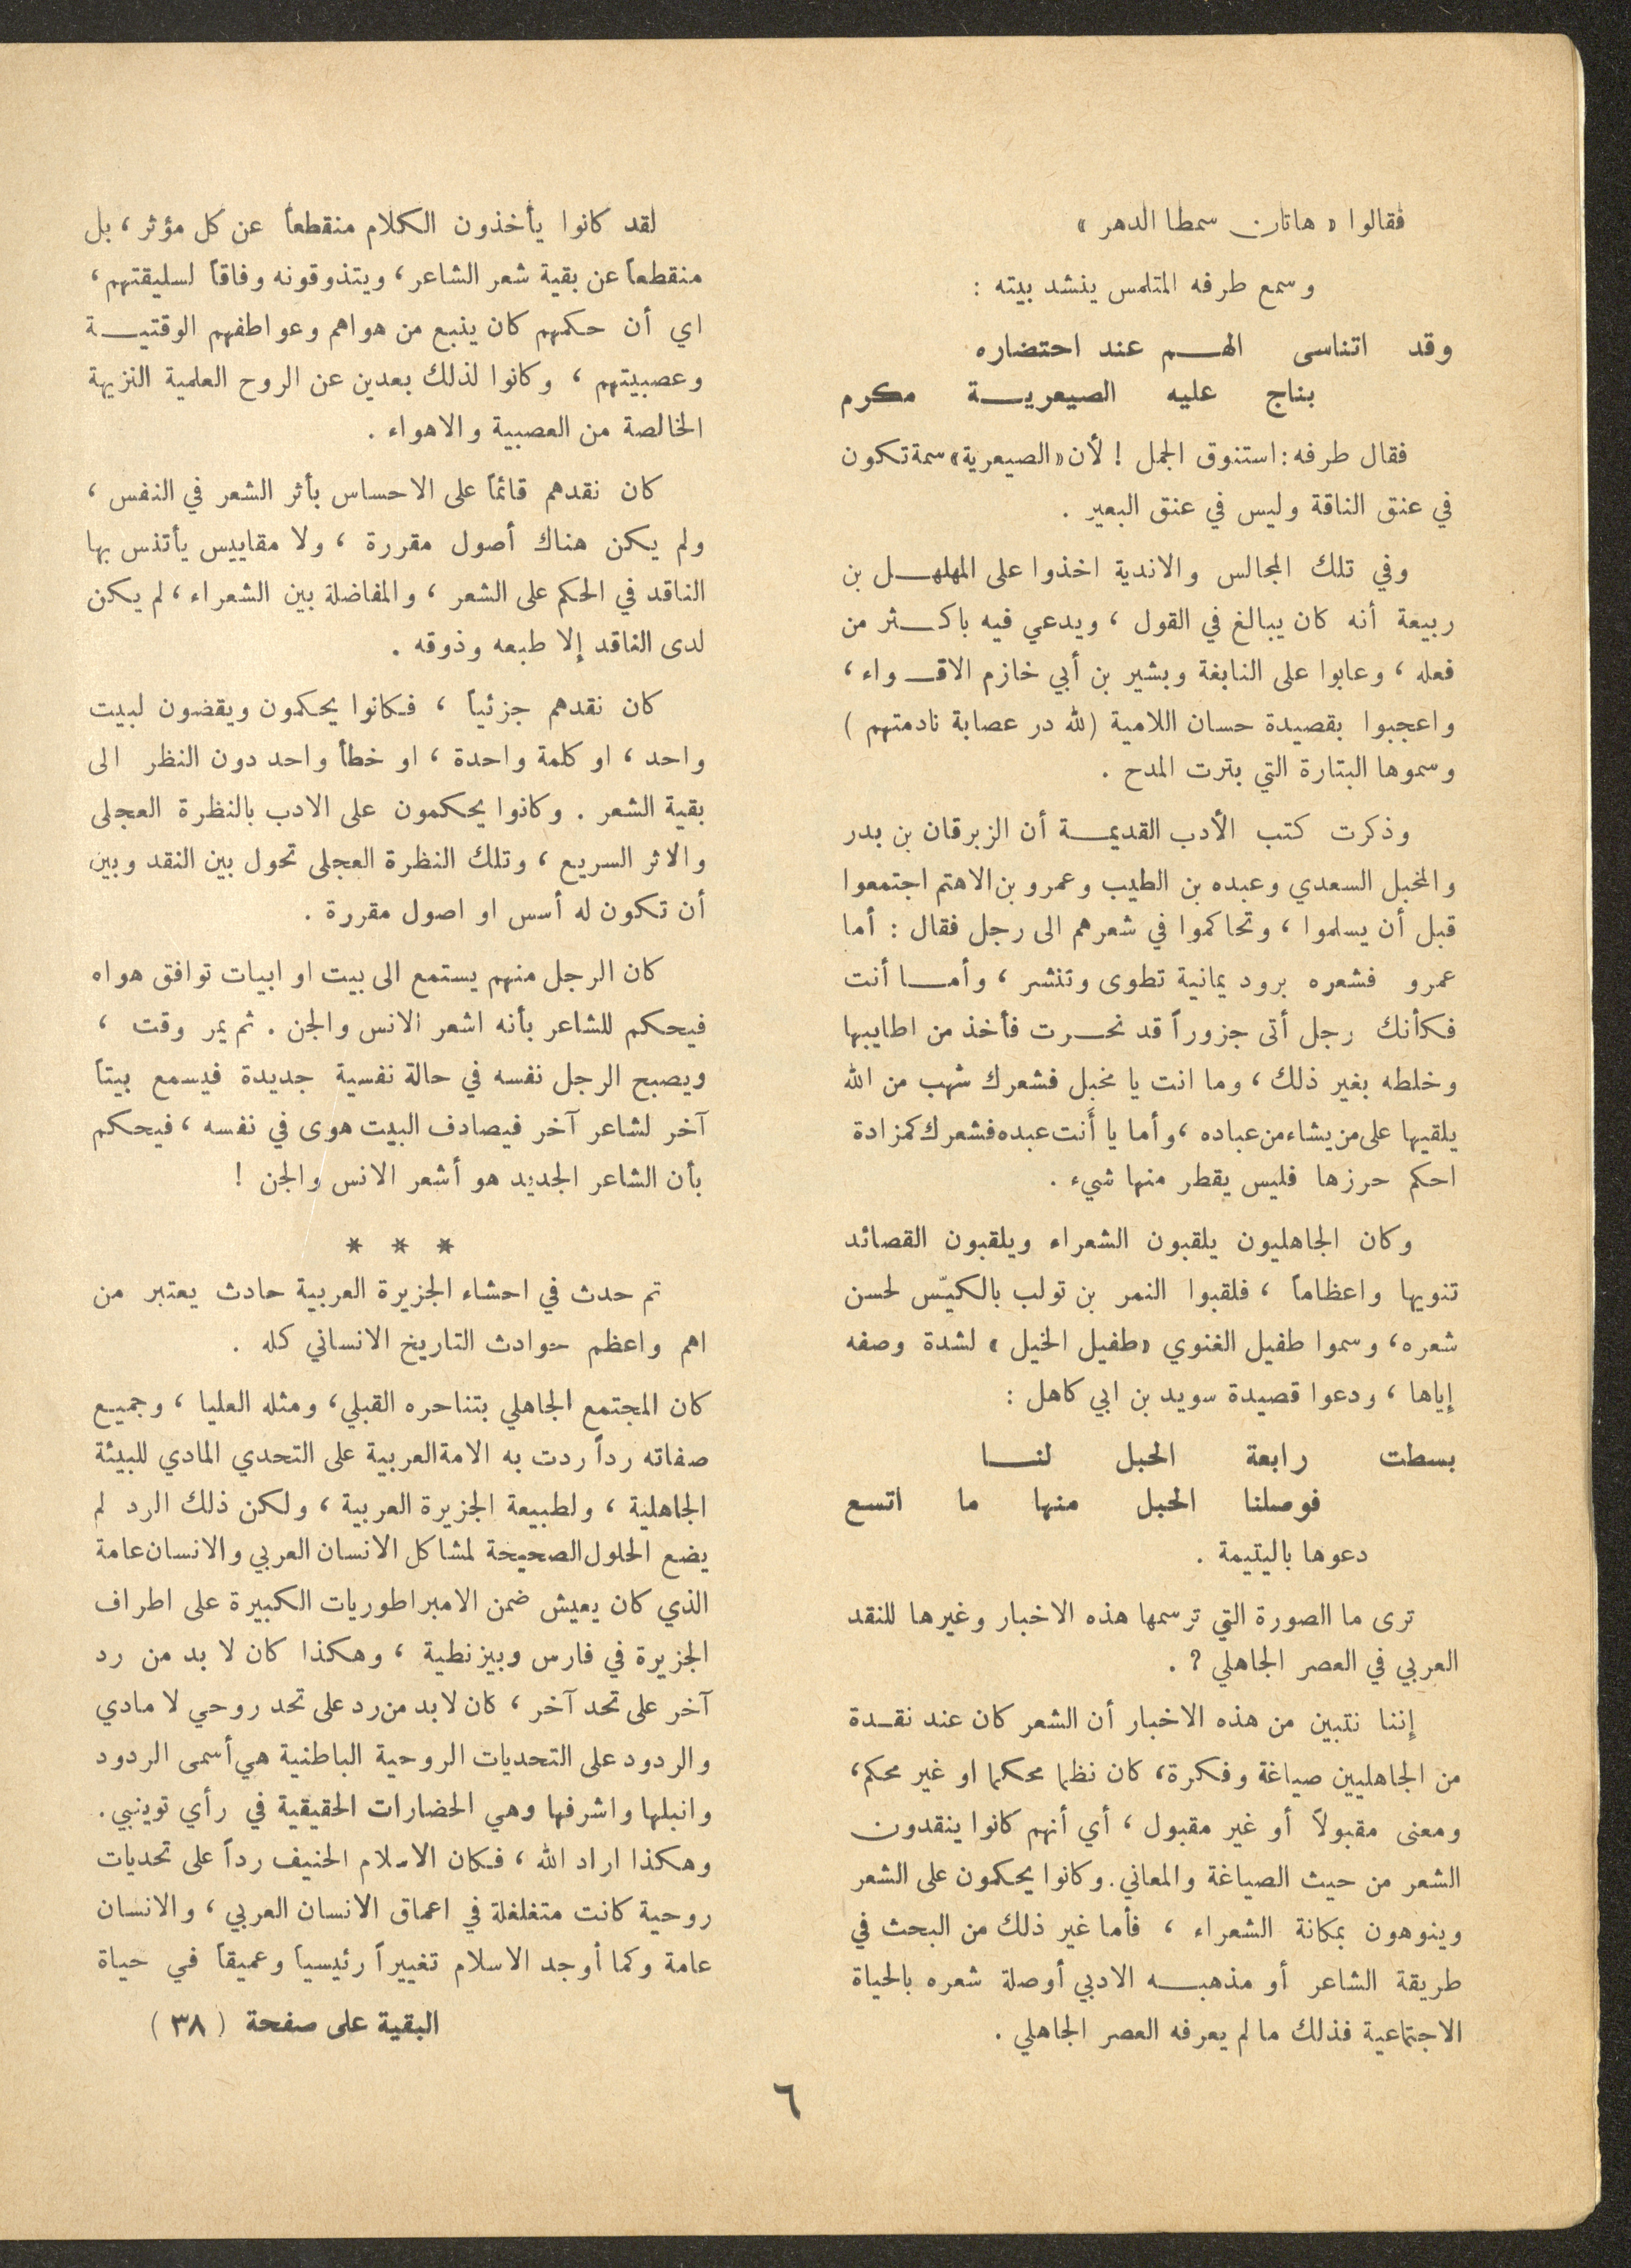 فقالوا « هاتان سمطا الدهر »
وسمع طرفه المتلمس ينشد بيته :
وقد اتناسى الهم عند احتضاره
بناج عليه الصيعرية مكرم
فقال طرفه : استنوق الجمل ! لأن « الصيعرية » سمة تكون
في عنق الناقة وليس في عنق البعير .
وفي تلك المجالس والاندية اخذوا على المهلهل بن
ربيعة أنه كان يبالغ في القول ، ويدعي فيه باكثر من
فعله ، وعابوا على النابغة وبشير بن أبي خازم الاقواء ،
واعجبوا بقصيدة حسان اللامية ( لله در عصابة نادمتهم )
وسموها البتارة التي بترت المدح .
وذكرت كتب الأدب القديمة أن الزبرقان بن بدر
والمخبل السعدي وعبده بن الطيب وعمرو بن الاهتم اجتمعوا
قبل أن يسلموا ، وتحاكموا في شعرهم الى رجل فقال : أما
عمرو فشعره برود يمانية تطوى وتنشر ، وأما أنت
فكأنك رجل أتى جزوراً قد نحرت فأخذ من اطايبها
وخلطه بغير ذلك ، وما انت يا مخبل فشعرك شهب من الله
يلقيها على من يشاء من عباده ، وأما يا أَنت عبده فشعرك كمزادة
احكم حرزها فليس يقطر منها شيء .
وكان الجاهليون يلقبون الشعراء ويلقبون القصائد
تنويها واعظاماً ، فلقبوا النمر بن تولب بالكيّس لحسن
شعره ، وسموا طفيل الغنوي « طفيل الخيل » لشدة وصفه
إياها ، ودعوا قصيدة سويد بن ابي كاهل :
بسطت رابعة الحبل لنا
فوصلنا الحبل منها ما اتسع
دعوها باليتيمة .
ترى ما الصورة التي ترسمها هذه الاخبار وغيرها للنقد
العربي في العصر الجاهلي ? .
إننا نتبين من هذه الاخبار أن الشعر كان عند نقدة
من الجاهليين صياغة وفكرة ، كان نظما محكما او غير محكم ،
ومعنى مقبولاً أو غير مقبول ، أي أنهم كانوا ينقدون
الشعر من حيث الصياغة والمعاني . وكانوا يحكمون على الشعر
وينوهون بمكانة الشعراء ، فأما غير ذلك من البحث في
طريقة الشاعر أو مذهبه الادبي أوصلة شعره بالحياة
الاجتماعية فذلك ما لم يعرفه العصر الجاهلي .
لقد كانوا يأخذون الكلام منقطعاً عن كل مؤثر ، بل
منقطعاً عن بقية شعر الشاعر ، ويتذوقونه وفاقاً لسليقتهم ،
اي أن حكمهم كان ينبع من هواهم وعواطفهم الوقتية
وعصبيتهم ، وكانوا لذلك بعدين عن الروح العلمية النزيهة
الخالصة من العصبية والاهواء .
كان نقدهم قائماً على الاحساس بأثر الشعر في النفس ،
ولم يكن هناك أصول مقررة ، ولا مقاييس يأتذس بها
الناقد في الحكم على الشعر ، والمفاضلة بين الشعراء ، لم يكن
لدى الناقد إلا طبعه وذوقه .
كان نقدهم جزئياً ، فكانوا يحكمون ويقضون لبيت
واحد ، او كلمة واحدة ، او خطأ واحد دون النظر الى
بقية الشعر . وكانوا يحكمون على الادب بالنظرة العجلى
والاثر السريع ، وتلك النظرة العجلى تحول بين النقد وبين
أن تكون له أسس او اصول مقررة .
كان الرجل منهم يستمع الى بيت او ابيات توافق هواه
فيحكم للشاعر بأنه اشعر الانس والجن . ثم يمر وقت ،
ويصبح الرجل نفسه في حالة نفسية جديدة فيسمع بيتاً
آخر لشاعر آخر فيصادف البيت هوى في نفسه ، فيحكم
بأن الشاعر الجديد هو أشعر الانس والجن !
* * *
تم حدث في احشاء الجزيرة العربية حادث يعتبر من
اهم واعظم حوادث التاريخ الانساني كله .
كان المجتمع الجاهلي بتناحره القبلي ، ومثله العليا ، وجميع
صفاته رداً ردت به الامة العربية على التحدي المادي للبيئة
الجاهلية ، ولطبيعة الجزيرة العربية ، ولكن ذلك الرد لم
يضع الحلول الصحيحة لمشاكل الانسان العربي والانسان عامة
الذي كان يعيش ضمن الامبراطوريات الكبيرة على اطراف
الجزيرة في فارس وبيزنطية ، وهكذا كان لا بد من رد
آخر على تحد آخر ، كان لابد من رد على تحد روحي لا مادي
والردود على التحديات الروحية الباطنية هي أسمى الردود
وانبلها واشرفها وهي الحضارات الحقيقية في رأي توينبي .
وهكذا اراد الله ، فكان الاسلام الحنيف رداً على تحديات
روحية كانت متغلغلة في اعماق الانسان العربي ، والانسان
عامة وكما أوجد الاسلام تغييراً رئيسياً وعميقاً في حياة
البقية على صفحة ( ٣٨ )
٦